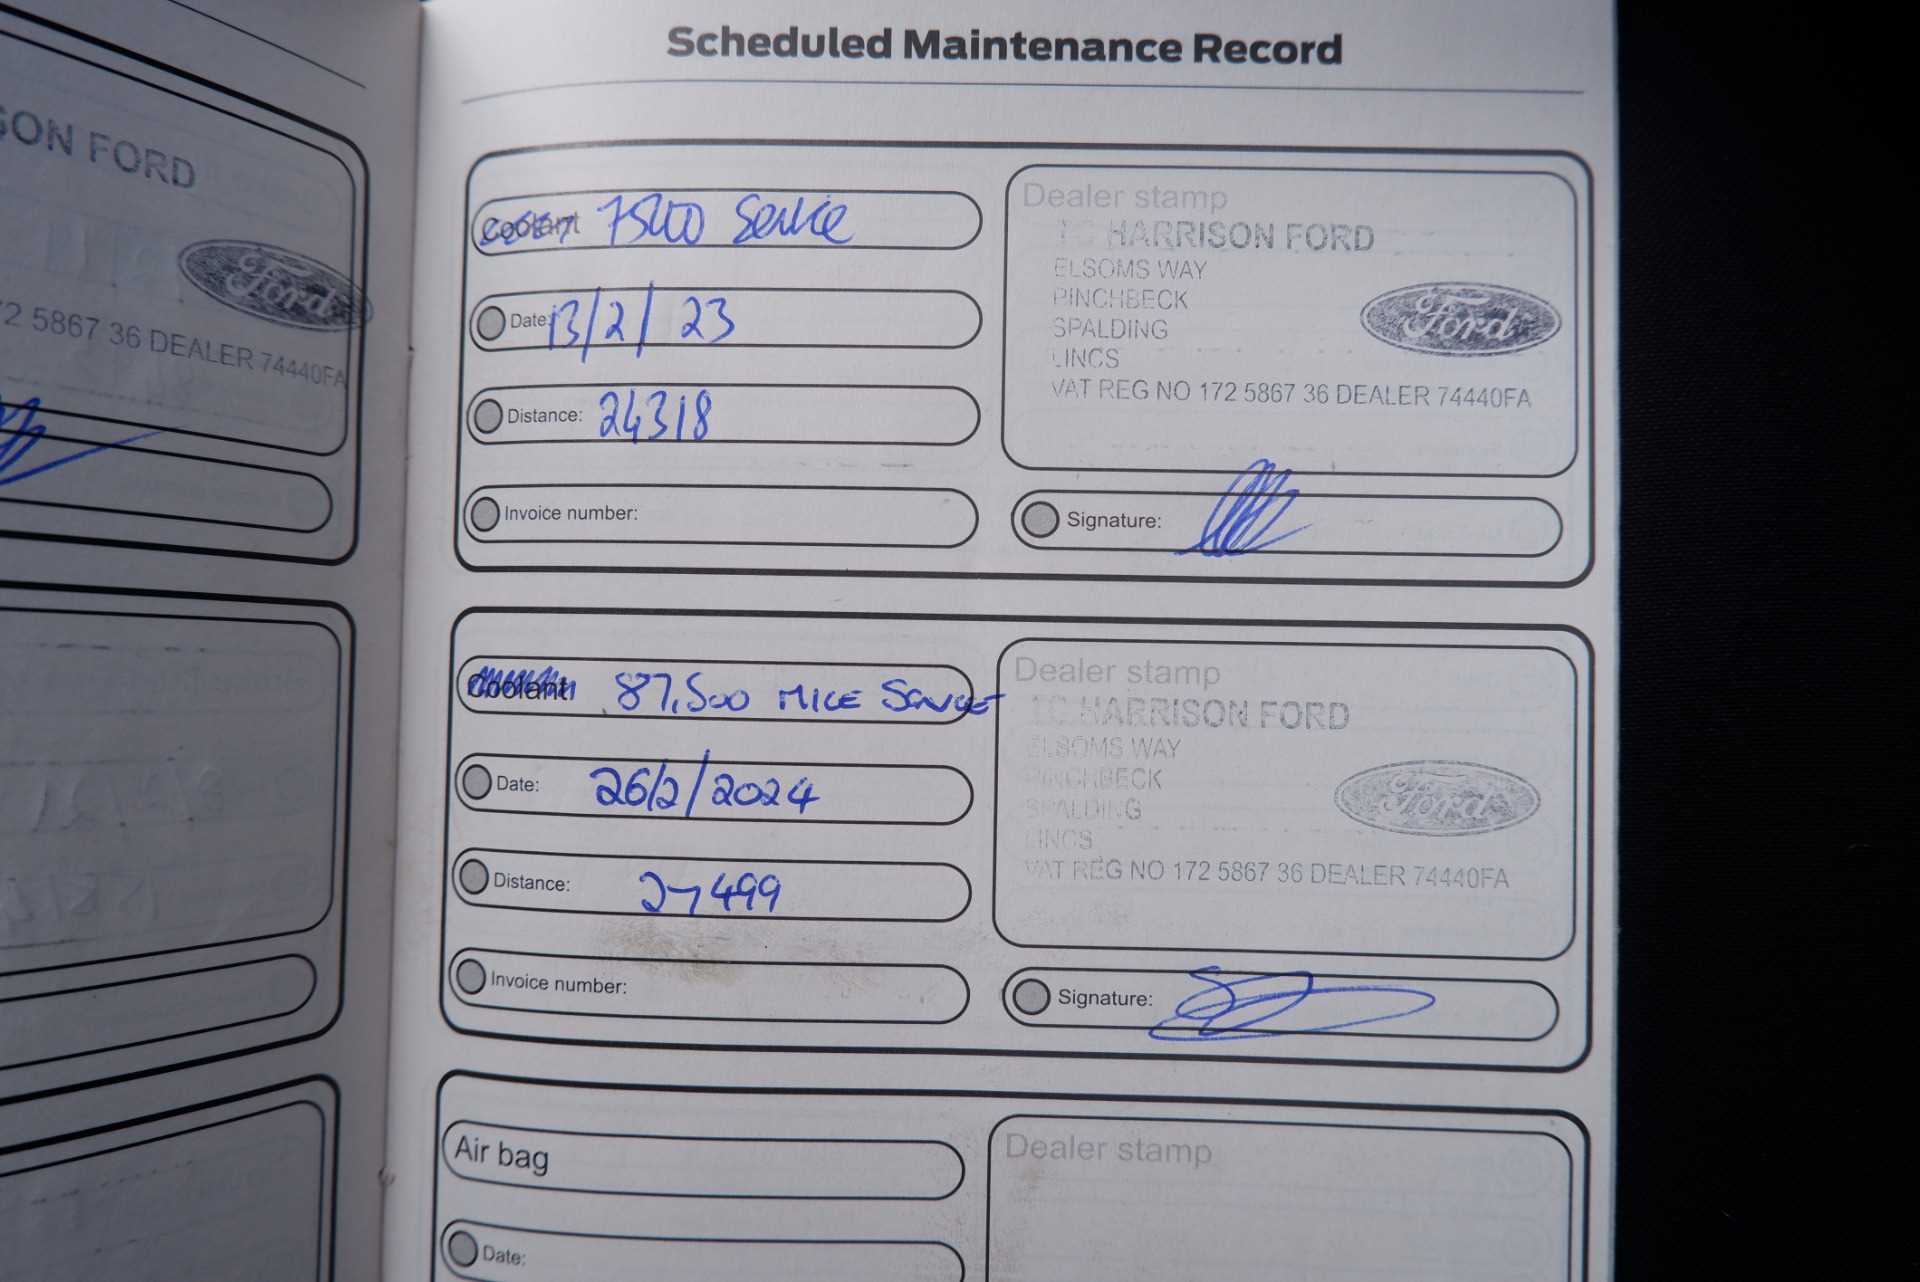 SON FORD
Ford
72 5867 36 DEALER 74440FA
Scheduled Maintenance Record
Coolant 75000 Service
Date: 13/2/23
Distance: 24318
Invoice number:
Dealer stamp
TC HARRISON FORD
ELSOMS WAY
PINCHBECK
SPALDING
LINCS
VAT REG NO 172 5867 36 DEALER 74440FA
Ford
Signature:
Coolant 87,500 MILE SERVICE
Date: 26/2/2024
Distance: 27499
Invoice number:
Dealer stamp
TC HARRISON FORD
ELSOMS WAY
PINCHBECK
SPALDING
LINCS
VAT REG NO 172 5867 36 DEALER 74440FA
Ford
Signature:
Air bag
Date:
Dealer stamp